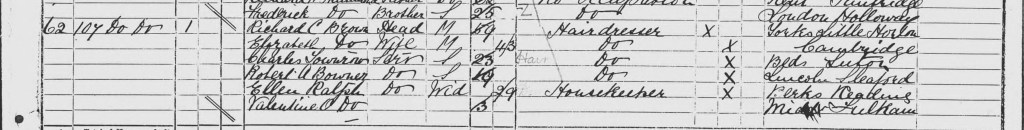 Frederick Do Brother S 25 Do London Holloway
62 107 Do Do 1 Richard C Brown Head M 59 Hairdresser X Yorks Little Horton
Elizabeth Do Wife M 43 Do X Cambridge
Charles Serv S 23 Hair Do X Beds Luton
Robert A Bowner Do S 19 Do X Lincoln Sleaford
Ellen Ralph Do Wid 29 Housekeeper X Berks Reading
Valentine C Do 3 Midx Fulham